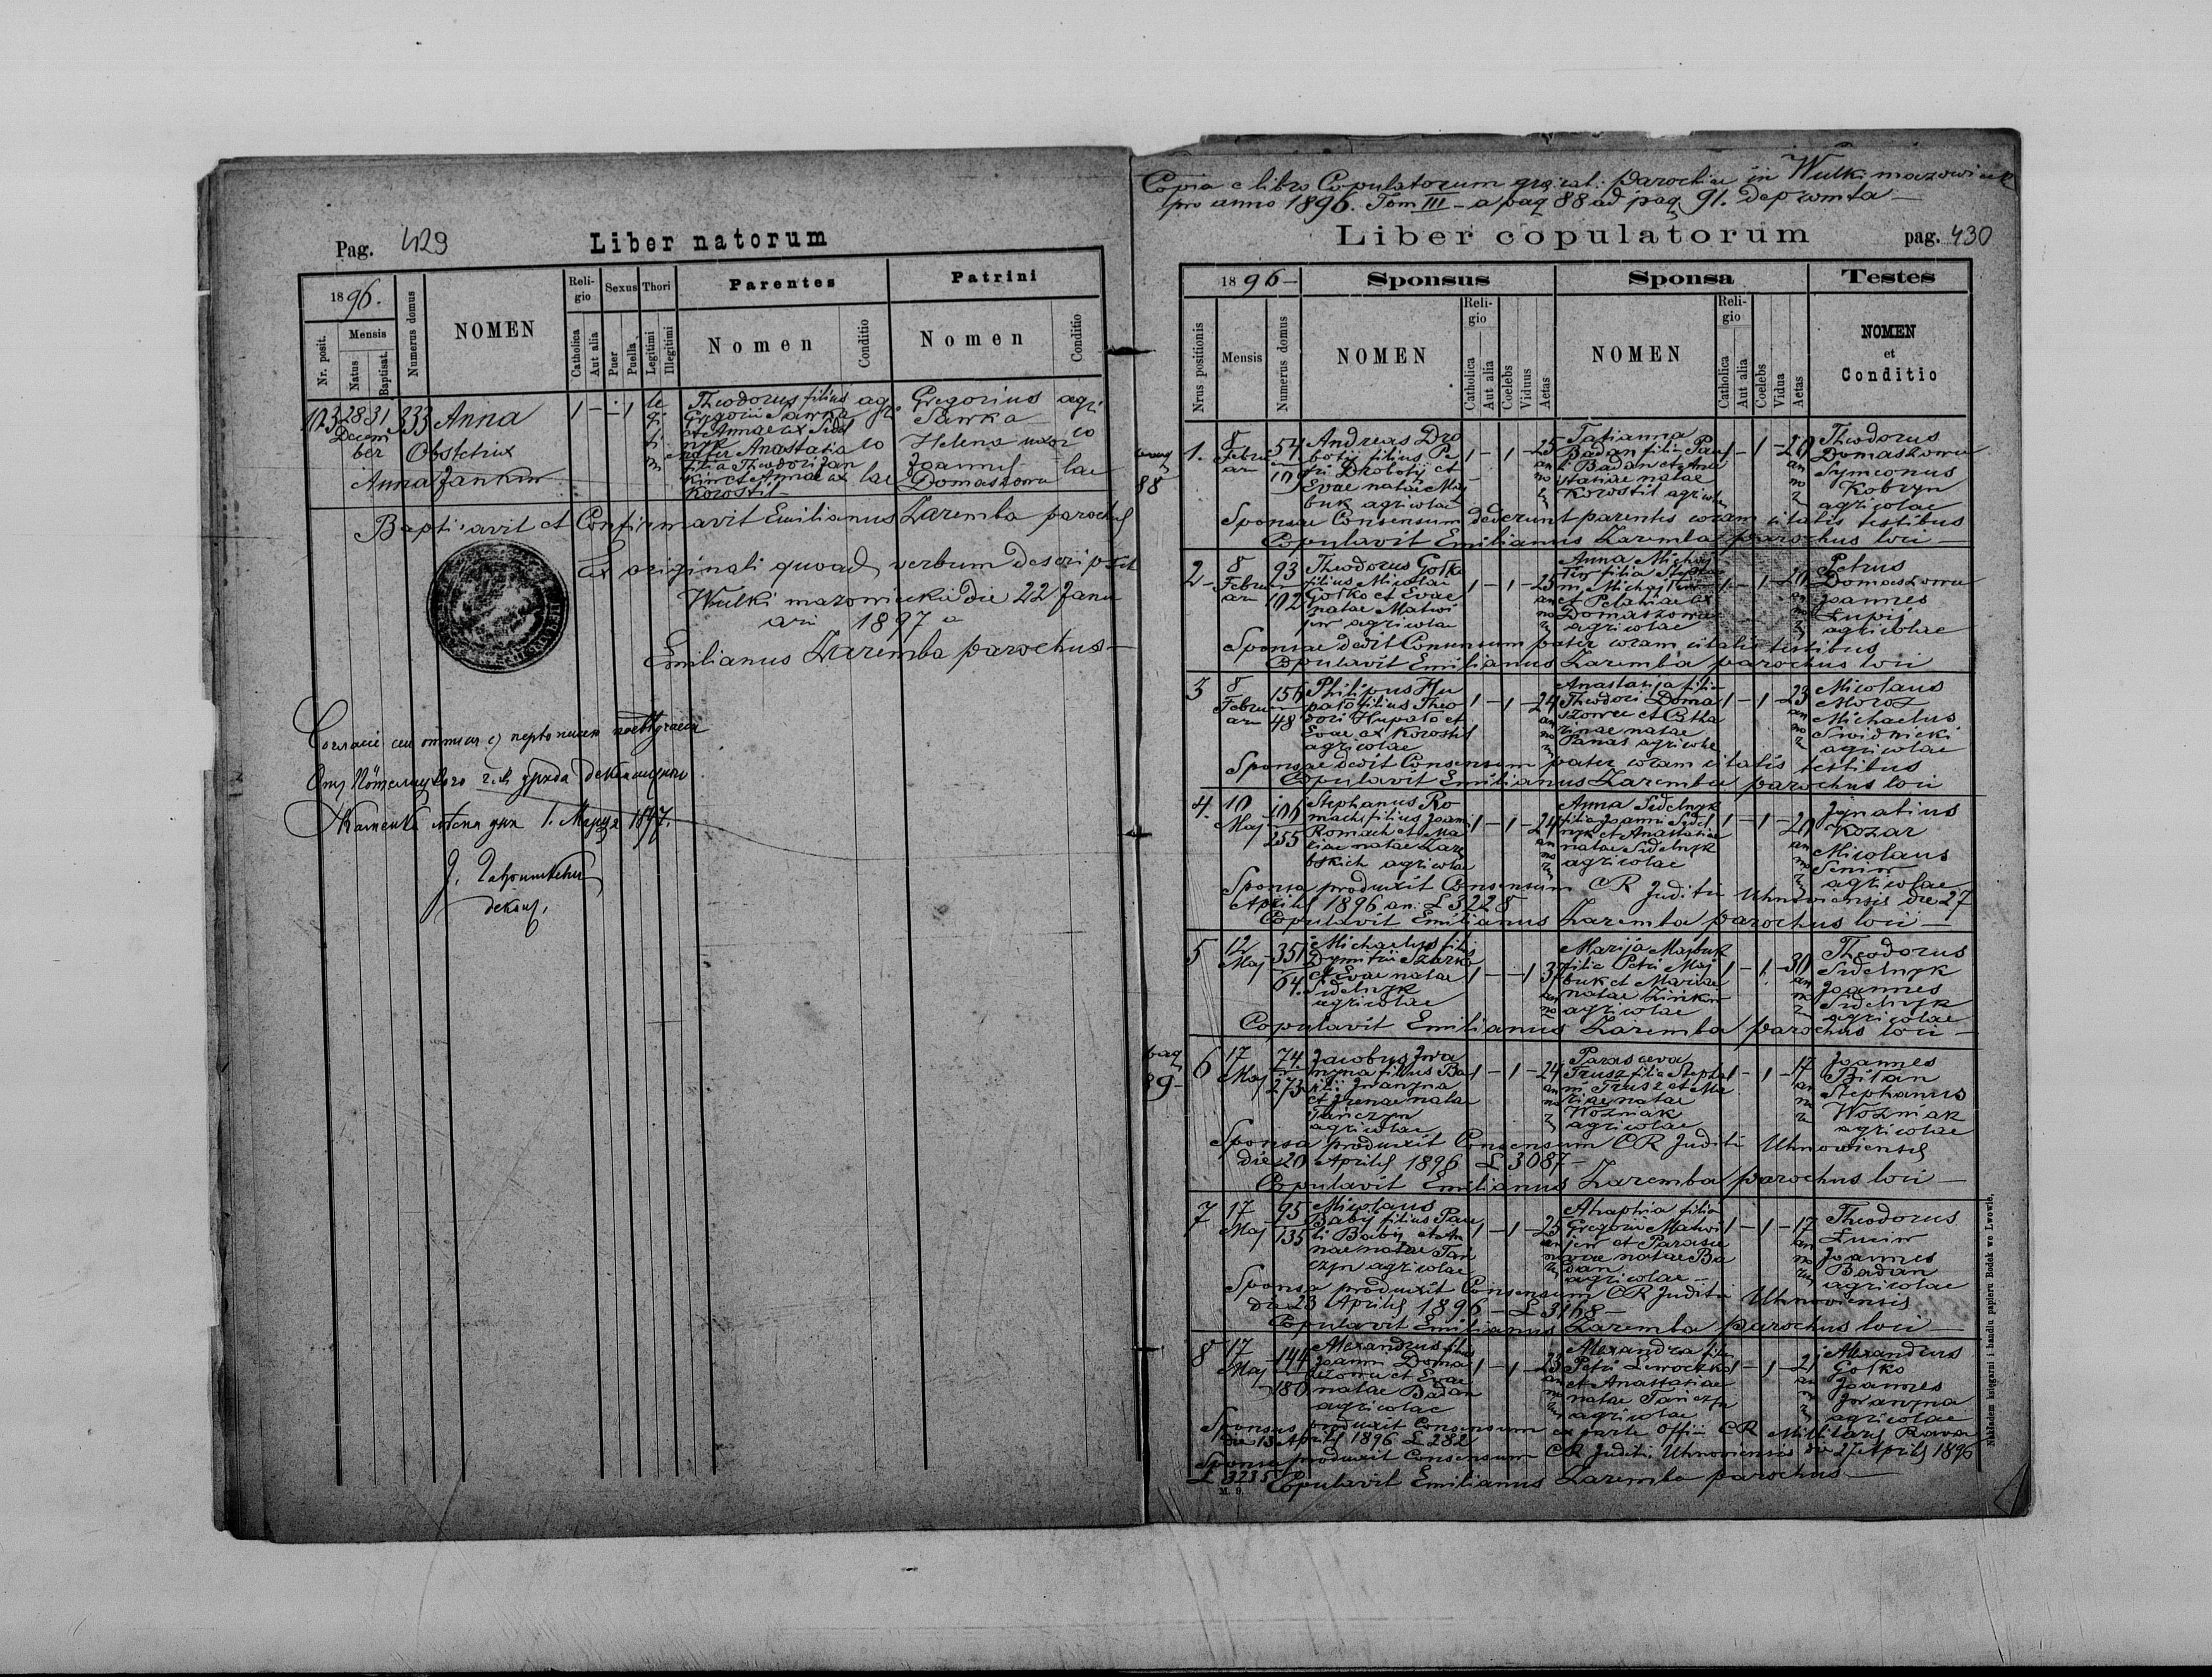 Pag. 429
Liber natorum
1896.
Nr. posit.
Mensis
Natus
Baptisat.
Numerus domus
NOMEN
Religio
Catholica
Aut alia
Sexus
Puer
Puella
Thori
Legitimi
Illegitimi
Parentes
Nomen
Conditio
Patrini
Nomen
Conditio
123 28 31 333 Anna 1 - - 1
Decem
ber
Obstetrix
Anna Jankiw
Theodorus filius
Gregorii Sawka
et Annae ex Sydel
nyk
uxor Anastasia
filia Theodori Jan
kiw et Annae ex
Korostil
agri
co
lae
Gregorius
Sawka
Helena uxor
Joannis
Domaszowa
agri
co
lae
Baptisavit et Confirmavit Emilianus Zaremba parochus
Ex originali quoad verbum descripsit
Wulki mazowieckie die 22 Janu
arii 1897
Emilianus Zaremba parochus
1. Марця 1897.
декан.
Copia e libro Copulatorum gr. cat. Parochiae in Wulki mazowieck
pro anno 1896. Tom III - a pag 88 ad pag 91. depromta
Liber copulatorum
pag. 430
1896
Nrus positionis
Mensis
Numerus domus
Sponsus
NOMEN
Religio
Catholica
Aut alia
Coelebs
Viduus
Aetas
Sponsa
NOMEN
Religio
Catholica
Aut alia
Coelebs
Vidua
Aetas
Testes
NOMEN
et
Conditio
88
1. 8 Febru ar 54 109
Andreas Dro
botij filius Pe
tri Drobotij et
Evae natae Maj
buk agricolae
1 - 1 - 25 an no
Tatianna
Badan filia Pau
li Badan et Ana
stasiae natae
Korostil agricolae
1 - 1 - 20 an no
Theodorus
Domaszowa
Symeonus
Kobryn
agricolae
Sponsae Consensum dederunt parentes coram citatis testibus
Copulavit Emilianus Zaremba parochus loci
2 8 Febru ar 93 102
Theodorus Gosko
filius Nicolai
Gosko et Evae
natae Matwi
jiw agricolae
1 - 1 - 25 an no
Anna Michaj
liw filia Stepha
ni Michajliw
et Pelahiae ex
Domaszowa
agricolae
1 - 1 - 20
Petrus
Domaszowa
Joannes
Łupij
agricolae
Sponsae dedit Consensum pater coram citatis testibus
Copulavit Emilianus Zaremba parochus loci
3 8 Febru ar 156 48
Philipus Hu
palo filius Theo
dori Hupalo et
Evae ex Korostil
agricolae
1 - 1 - 24 an no
Anastasija filia
Theodori Doma
szowa et Catha
rinae natae
Panas agricolae
1 - 1 - 23 an no
Nicolaus
Moroz
Michaelus
Swidnicki
agricolae
Sponsae dedit Consensum pater coram citatis testibus
Copulavit Emilianus Zaremba parochus loci
4. 10 Maj 106 255
Stephanus Ro
mach filius Joan
Romach et Ma
riae natae Zare
bskich agricolae
1 - 1 - 24 an no
Anna Sydelnyk
filia Joanni Sydel
nyk et Anastasiae
natae Sydelnyk
agricolae
1 - 1 - 20 an no
Ignatius
Kozar
Nicolaus
Seniw
agricolae
Sponsa produxit Consensum CR Judicii Uhnoviensis die 27
Aprilis 1896 an. L 3228
Copulavit Emilianus Zaremba parochus loci
5 12 Maj 351 64
Michaelus fili
Dymitrii Szarko
et Evae natae
Sydelnyk
agricolae
1 - - 1 37 an no
Marija Majbuk
filia Petri Maj
buk et Mariae
natae Zinkiw
agricolae
1 - 1 - 30 an no
Theodorus
Sydelnyk
Joannes
Sydelnyk
agricolae
Copulavit Emilianus Zaremba parochus loci
pag
89
6 17 Maj 74. 273
Jacobus Iwa
nyna filius Ba
zilii Iwanyna
et Irenae natae
Tanczyn
agricolae
1 - 1 - 24 an no
Parasceva
Trusz filia Stepha
ni Trusz et Ma
riae natae
Wozniak
agricolae
1 - 1 - 17 an no
Joannes
Bitan
Stephanus
Wozniak
agricolae
Sponsa produxit Consensum CR Judicii Uhnoviensis
die 20 Aprilis 1896 L 3087
Copulavit Emilianus Zaremba parochus loci
7 17 Maj 95 135
Nicolaus
Babij filius Pau
li Babij et An
nae natae Tan
czyn agricolae
1 - 1 - 25 an no
Ahaphia filia
Gregorii Matwi
jiw et Parasce
vae natae Ba
dan
agricolae
1 - 1 - 17 an no
Theodorus
Łuciw
Joannes
Badan
agricolae
Sponsa produxit Consensum CR Judicii Uhnoviensis
die 23 Aprilis 1896 - L 3168
Copulavit Emilianus Zaremba parochus loci
8 17 Maj 144 180
Alexandrus filius
Joanni Doma
szowa et Evae
natae Badan
agricolae
1 - 1 - 23 an no
Alexandra filia
Petri Lewoczko
et Anastasiae
natae Tanczyn
agricolae
1 - 1 - 21 an no
Alexandrus
Gosko
Joannes
Iwanyna
agricolae
Sponsus produxit Consensum ex parte Officii CR Militaris Rawa
die 13 Aprilis 1896 L 282
Sponsa produxit Consensum CR Judicii Uhnoviensis die 27 Aprilis 1896
L 3235 Copulavit Emilianus Zaremba parochus
M. 9.
Nakładem księgarni i handlu papieru Bodek we Lwowie.